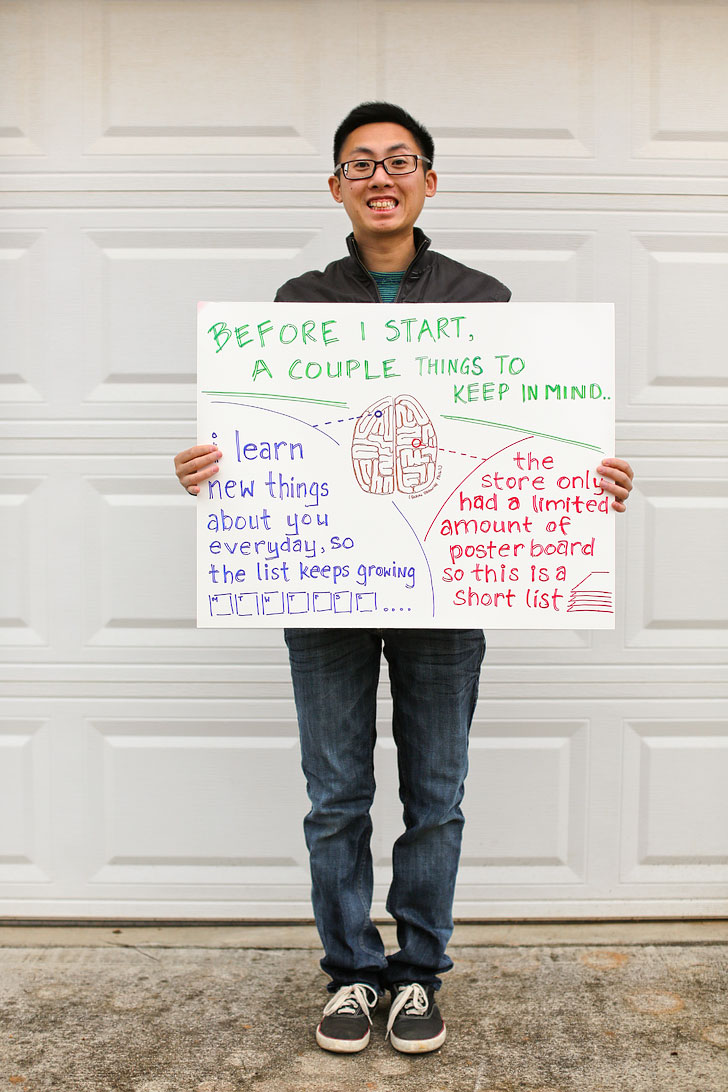 BEFORE I START,
A COUPLE THINGS TO
KEEP IN MIND..
i learn
new things
about you
everyday, so
the list keeps growing
M T W T F S S ....
the
store only
had a limited
amount of
poster board
so this is a
short list